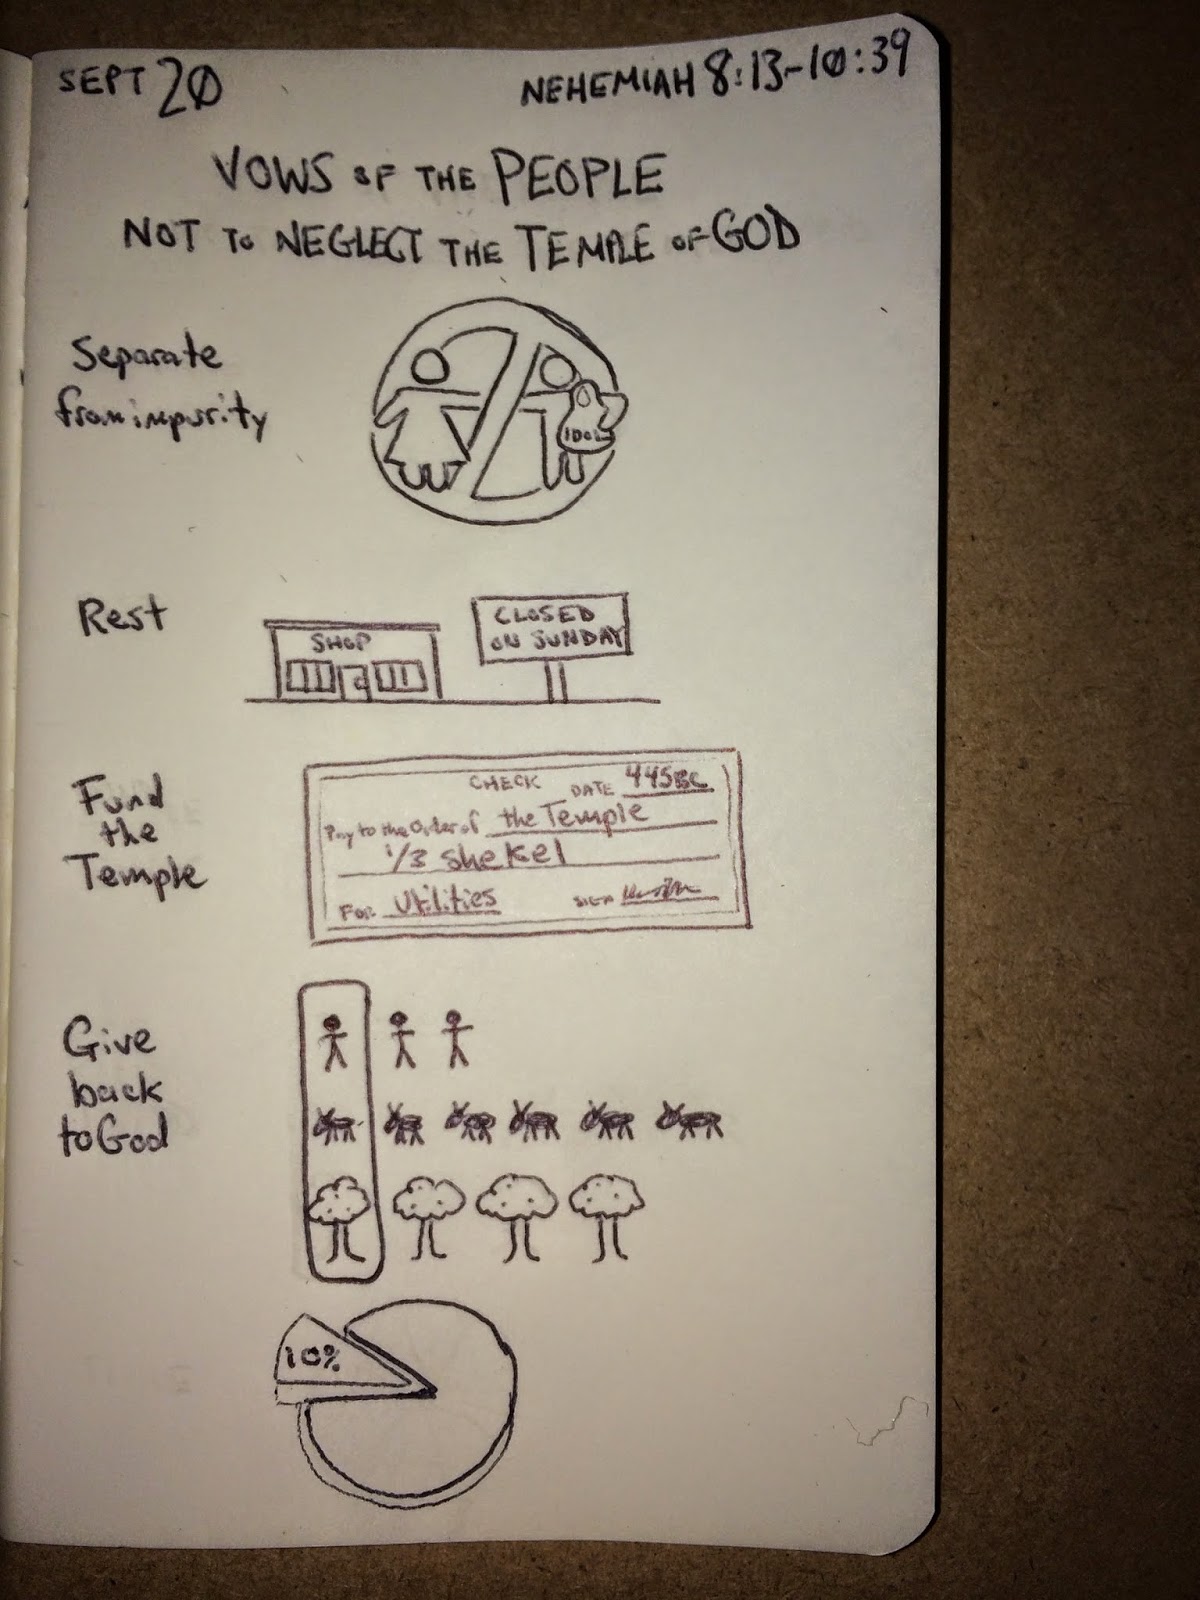 SEPT 20
NEHEMIAH 8:13-10:39
VOWS OF THE PEOPLE
NOT TO NEGLECT THE TEMPLE OF GOD
Separate
from impurity
IDOL
Rest
SHOP
CLOSED
ON SUNDAY
Fund
the
Temple
CHECK
DATE 445BC
Pay to the Order of the Temple
1/3 shekel
FOR Utilities
SIGN
Give
back
to God
10%